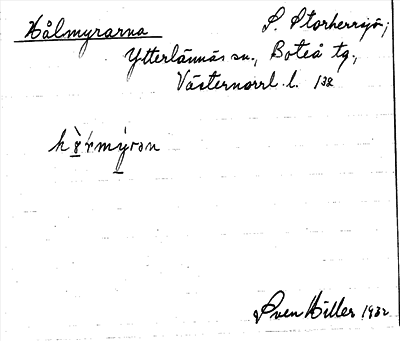 Hålmyrarna S. Storherrsjö;
Ytterlännäs sn., Boteå tg.,
Västernorrl. l. 132
Sven Hiller 1932